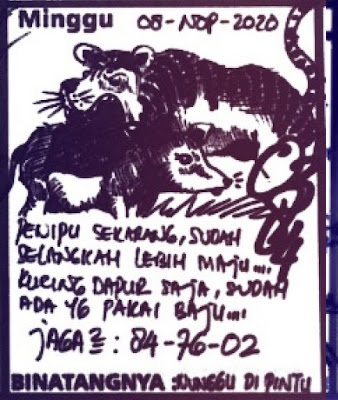 Minggu 08-NOP-2020
PENIPU SEKARANG, SUDAH
SELANGKAH LEBIH MAJU....
KUCING DAPUR SAJA, SUDAH
ADA YG PAKAI BAJU....
JAGA2 : 84-76-02
BINATANGNYA : TUNGGU DI PINTU